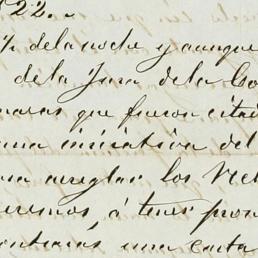 22.
de la noche y aunque
de la Jura de la Co
maras que fueron citad
una iniciativa del
para arreglar los Neg
queremos, á tener pron
contrarás una carta